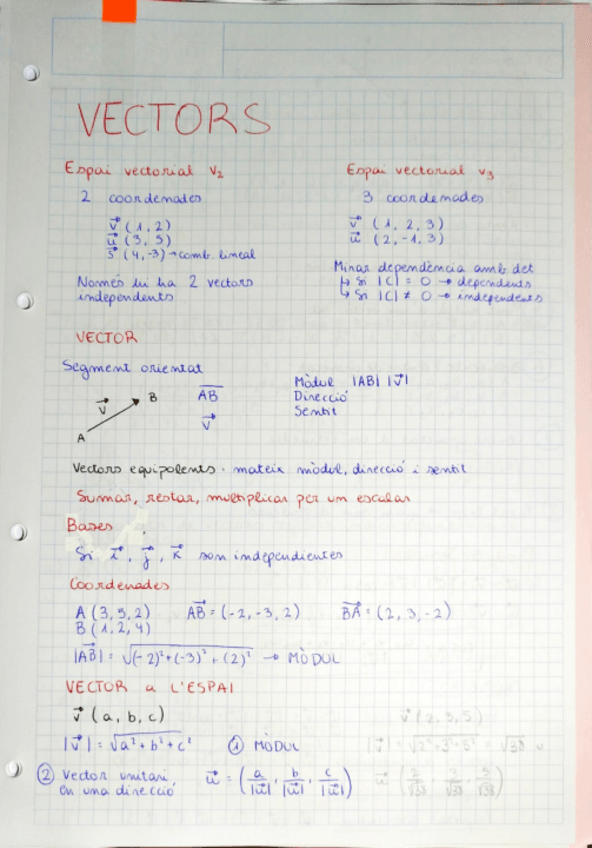 VECTORS
Espai vectorial V₂
2 coordenades
v⃗ (1, 2)
u⃗ (3, 5)
s⃗ (4, -3) → comb. lineal
Només hi ha 2 vectors
independents
Espai vectorial v₃
3 coordenades
v⃗ (1, 2, 3)
u⃗ (2, -1, 3)
Mirar dependència amb det
↳ Si |C| = 0 → dependents
↳ Si |C| ≠ 0 → independents
VECTOR
Segment orientat
v⃗ A B
AB
v⃗
Mòdul |AB| |v⃗|
Direcció
Sentit
Vectors equipolents · mateix mòdul, direcció i sentit
Sumar, restar, multiplicar per un escalar
Bases
Si i⃗, j⃗, k⃗ son independientes
Coordenades
A (3, 5, 2) AB⃗ = (-2, -3, 2) BA⃗ = (2, 3, -2)
B (1, 2, 4)
|AB⃗| = √(-2)² + (-3)² + (2)² → MÒDUL
VECTOR a L'ESPAI
v⃗ (a, b, c) v⃗ (2, 3, 5)
|v⃗| = √a² + b² + c² ① MÒDUL |v⃗| = √2² + 3² + 5² = √38 u
② Vector unitari, u⃗ = (a/|u⃗|, b/|u⃗|, c/|u⃗|) u⃗ (2/√38, 3/√38, 5/√38)
en una direcció